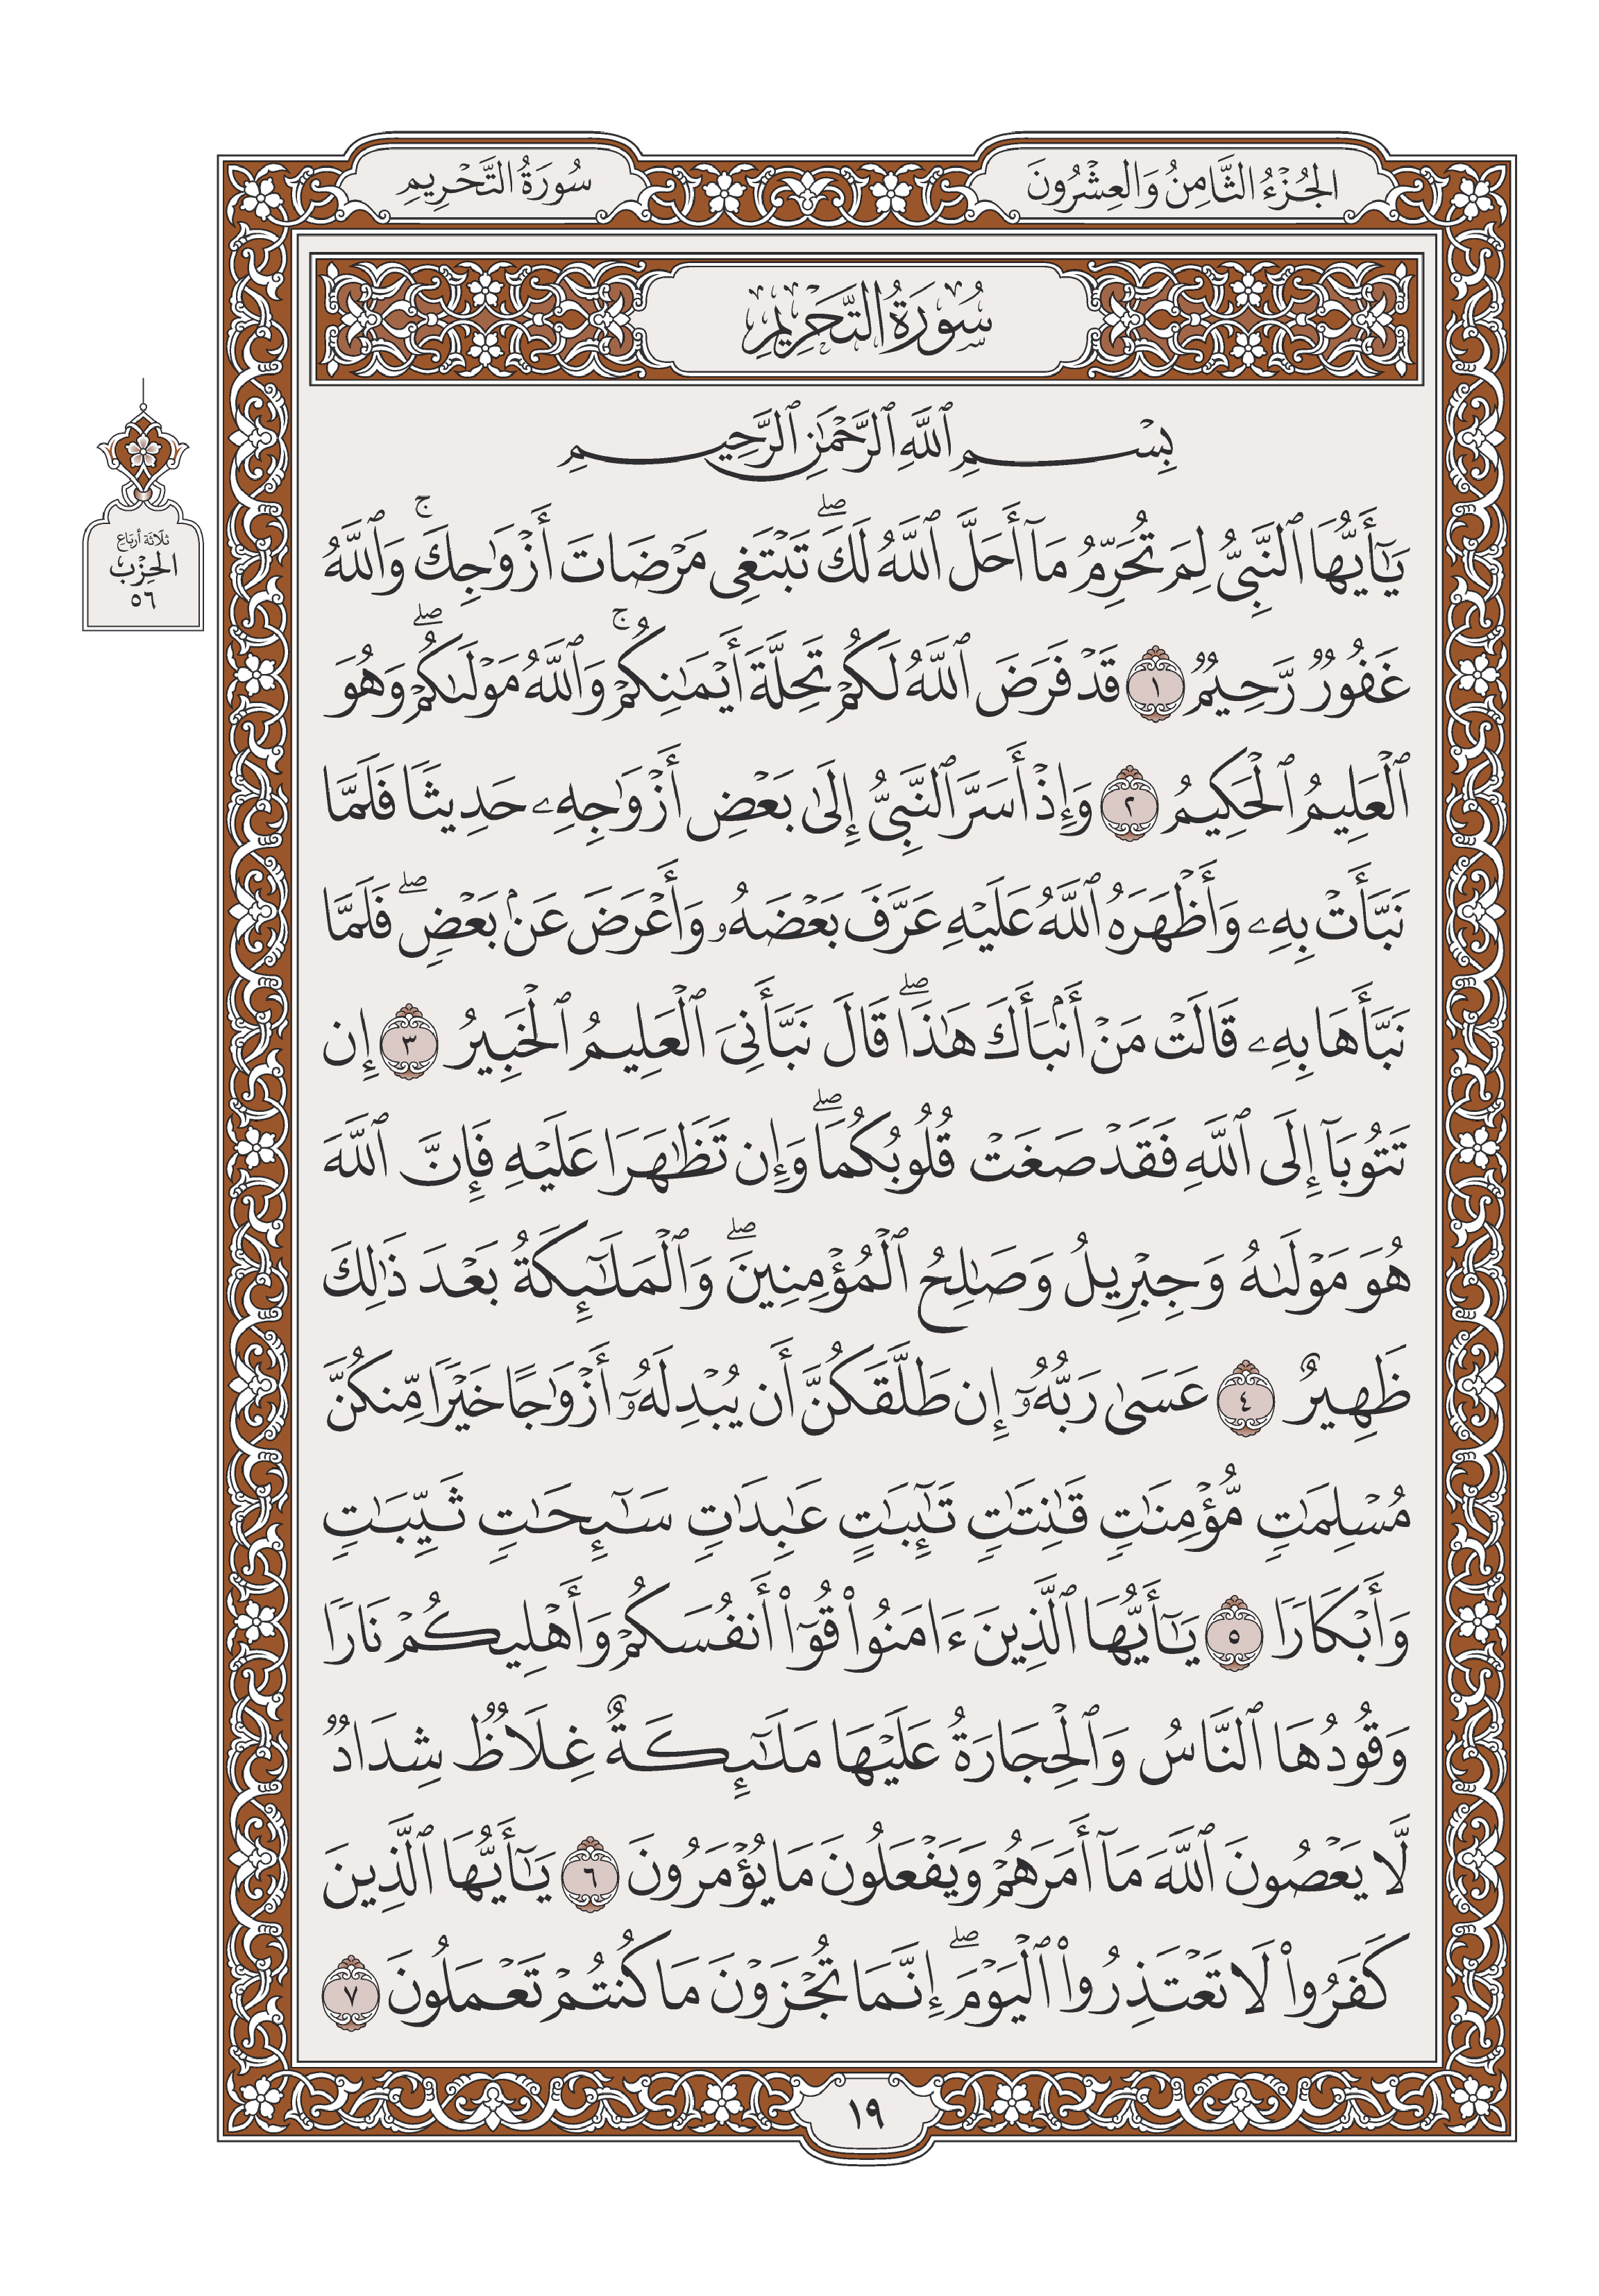 الجُزْءُ الثَّامِنُ وَالعِشْرُونَ
سُورَةُ التَّحْرِيمِ
سُورَةُ التَّحْرِيمِ
ثلاثة أرباع
الحِزْب
٥٦
بِسْمِ ٱللَّهِ ٱلرَّحْمَٰنِ ٱلرَّحِيمِ
يَٰٓأَيُّهَا ٱلنَّبِىُّ لِمَ تُحَرِّمُ مَآ أَحَلَّ ٱللَّهُ لَكَ ۖ تَبْتَغِى مَرْضَاتَ أَزْوَٰجِكَ ۚ وَٱللَّهُ
غَفُورٌ رَّحِيمٌ ١ قَدْ فَرَضَ ٱللَّهُ لَكُمْ تَحِلَّةَ أَيْمَٰنِكُمْ ۚ وَٱللَّهُ مَوْلَىٰكُمْ ۖ وَهُوَ
ٱلْعَلِيمُ ٱلْحَكِيمُ ٢ وَإِذْ أَسَرَّ ٱلنَّبِىُّ إِلَىٰ بَعْضِ أَزْوَٰجِهِۦ حَدِيثًا فَلَمَّا
نَبَّأَتْ بِهِۦ وَأَظْهَرَهُ ٱللَّهُ عَلَيْهِ عَرَّفَ بَعْضَهُۥ وَأَعْرَضَ عَنۢ بَعْضٍ ۖ فَلَمَّا
نَبَّأَهَا بِهِۦ قَالَتْ مَنْ أَنۢبَأَكَ هَٰذَا ۖ قَالَ نَبَّأَنِىَ ٱلْعَلِيمُ ٱلْخَبِيرُ ٣ إِن
تَتُوبَآ إِلَى ٱللَّهِ فَقَدْ صَغَتْ قُلُوبُكُمَا ۖ وَإِن تَظَٰهَرَا عَلَيْهِ فَإِنَّ ٱللَّهَ
هُوَ مَوْلَىٰهُ وَجِبْرِيلُ وَصَٰلِحُ ٱلْمُؤْمِنِينَ ۖ وَٱلْمَلَٰٓئِكَةُ بَعْدَ ذَٰلِكَ
ظَهِيرٌ ٤ عَسَىٰ رَبُّهُۥٓ إِن طَلَّقَكُنَّ أَن يُبْدِلَهُۥٓ أَزْوَٰجًا خَيْرًا مِّنكُنَّ
مُسْلِمَٰتٍ مُّؤْمِنَٰتٍ قَٰنِتَٰتٍ تَٰٓئِبَٰتٍ عَٰبِدَٰتٍ سَٰٓئِحَٰتٍ ثَيِّبَٰتٍ
وَأَبْكَارًا ٥ يَٰٓأَيُّهَا ٱلَّذِينَ ءَامَنُوا۟ قُوٓا۟ أَنفُسَكُمْ وَأَهْلِيكُمْ نَارًا
وَقُودُهَا ٱلنَّاسُ وَٱلْحِجَارَةُ عَلَيْهَا مَلَٰٓئِكَةٌ غِلَاظٌ شِدَادٌ
لَّا يَعْصُونَ ٱللَّهَ مَآ أَمَرَهُمْ وَيَفْعَلُونَ مَا يُؤْمَرُونَ ٦ يَٰٓأَيُّهَا ٱلَّذِينَ
كَفَرُوا۟ لَا تَعْتَذِرُوا۟ ٱلْيَوْمَ ۖ إِنَّمَا تُجْزَوْنَ مَا كُنتُمْ تَعْمَلُونَ ٧
١٩